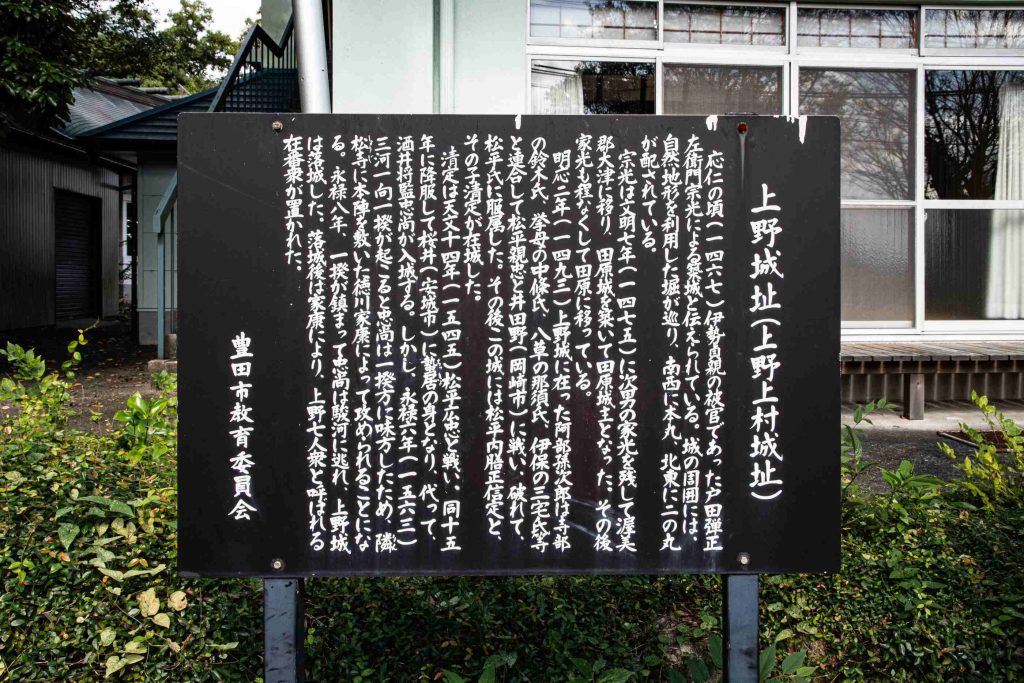 上野城址(上野上村城址)
応仁の頃(一四六七)伊勢貞親の被官であった戸田弾正
左衛門宗光による築城と伝えられている。城の周囲には、
自然地形を利用した堀が巡り、南西に本丸、北東に二の丸
が配されている。
宗光は文明七年(一四七五)に次男の家光を残して渥美
郡大津に移り、田原城を築いて田原城主となった。その後
家光も程なくして田原に移っている。
明応二年(一四九三)上野城に在った阿部孫次郎は寺部
の鈴木氏、挙母の中條氏、八草の那須氏、伊保の三宅氏等
と連合して松平親忠と井田野(岡崎市)に戦い、破れて、
松平氏に服属した。その後この城には松平内膳正信定と、
その子清定が在城した。
清定は天文十四年(一五四五)松平広忠と戦い、同十五
年に降服して桜井(安城市)に蟄居の身となり、代って、
酒井将監忠尚が入城する。しかし、永禄六年(一五六三)
三河一向一揆が起こると忠尚は一揆方に味方したため、隣
松寺に本陣を敷いた徳川家康によって攻められることにな
る。永禄八年、一揆が鎮まって忠尚は駿河に逃れ、上野城
は落城した。落城後は家康により、上野七人衆と呼ばれる
在番衆が置かれた。
豊田市教育委員会